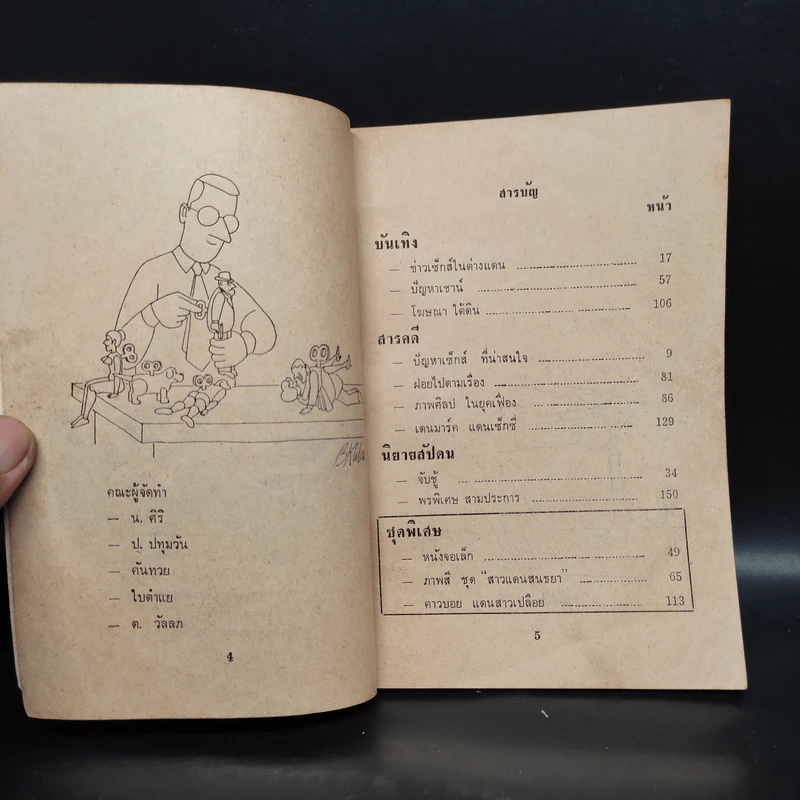 คณะผู้จัดทำ
— น. ศิริ
— ป. ปทุมวัน
— คันทวย
— ใบตำแย
— ต. วัลลภ
4
สารบัญ
หน้า
บันเทิง
— ข่าวเซ็กส์ในต่างแดน 17
— ปัญหาเชาน์ 57
— โฆษณา ใต้ดิน 106
สารคดี
— ปัญหาเซ็กส์ ที่น่าสนใจ 9
— ฝอยไปตามเรื่อง 81
— ภาพศิลป ในยุคเฟื่อง 86
— เดนมาร์ค แดนเซ็กซี่ 129
นิยายสัปดน
— จับชู้ 34
— พรพิเศษ สามประการ 150
ชุดพิเศษ
— หนังจอเล็ก 49
— ภาพสี ชุด "สาวแดนสนธยา" 65
— คาวบอย แดนสาวเปลือย 113
5